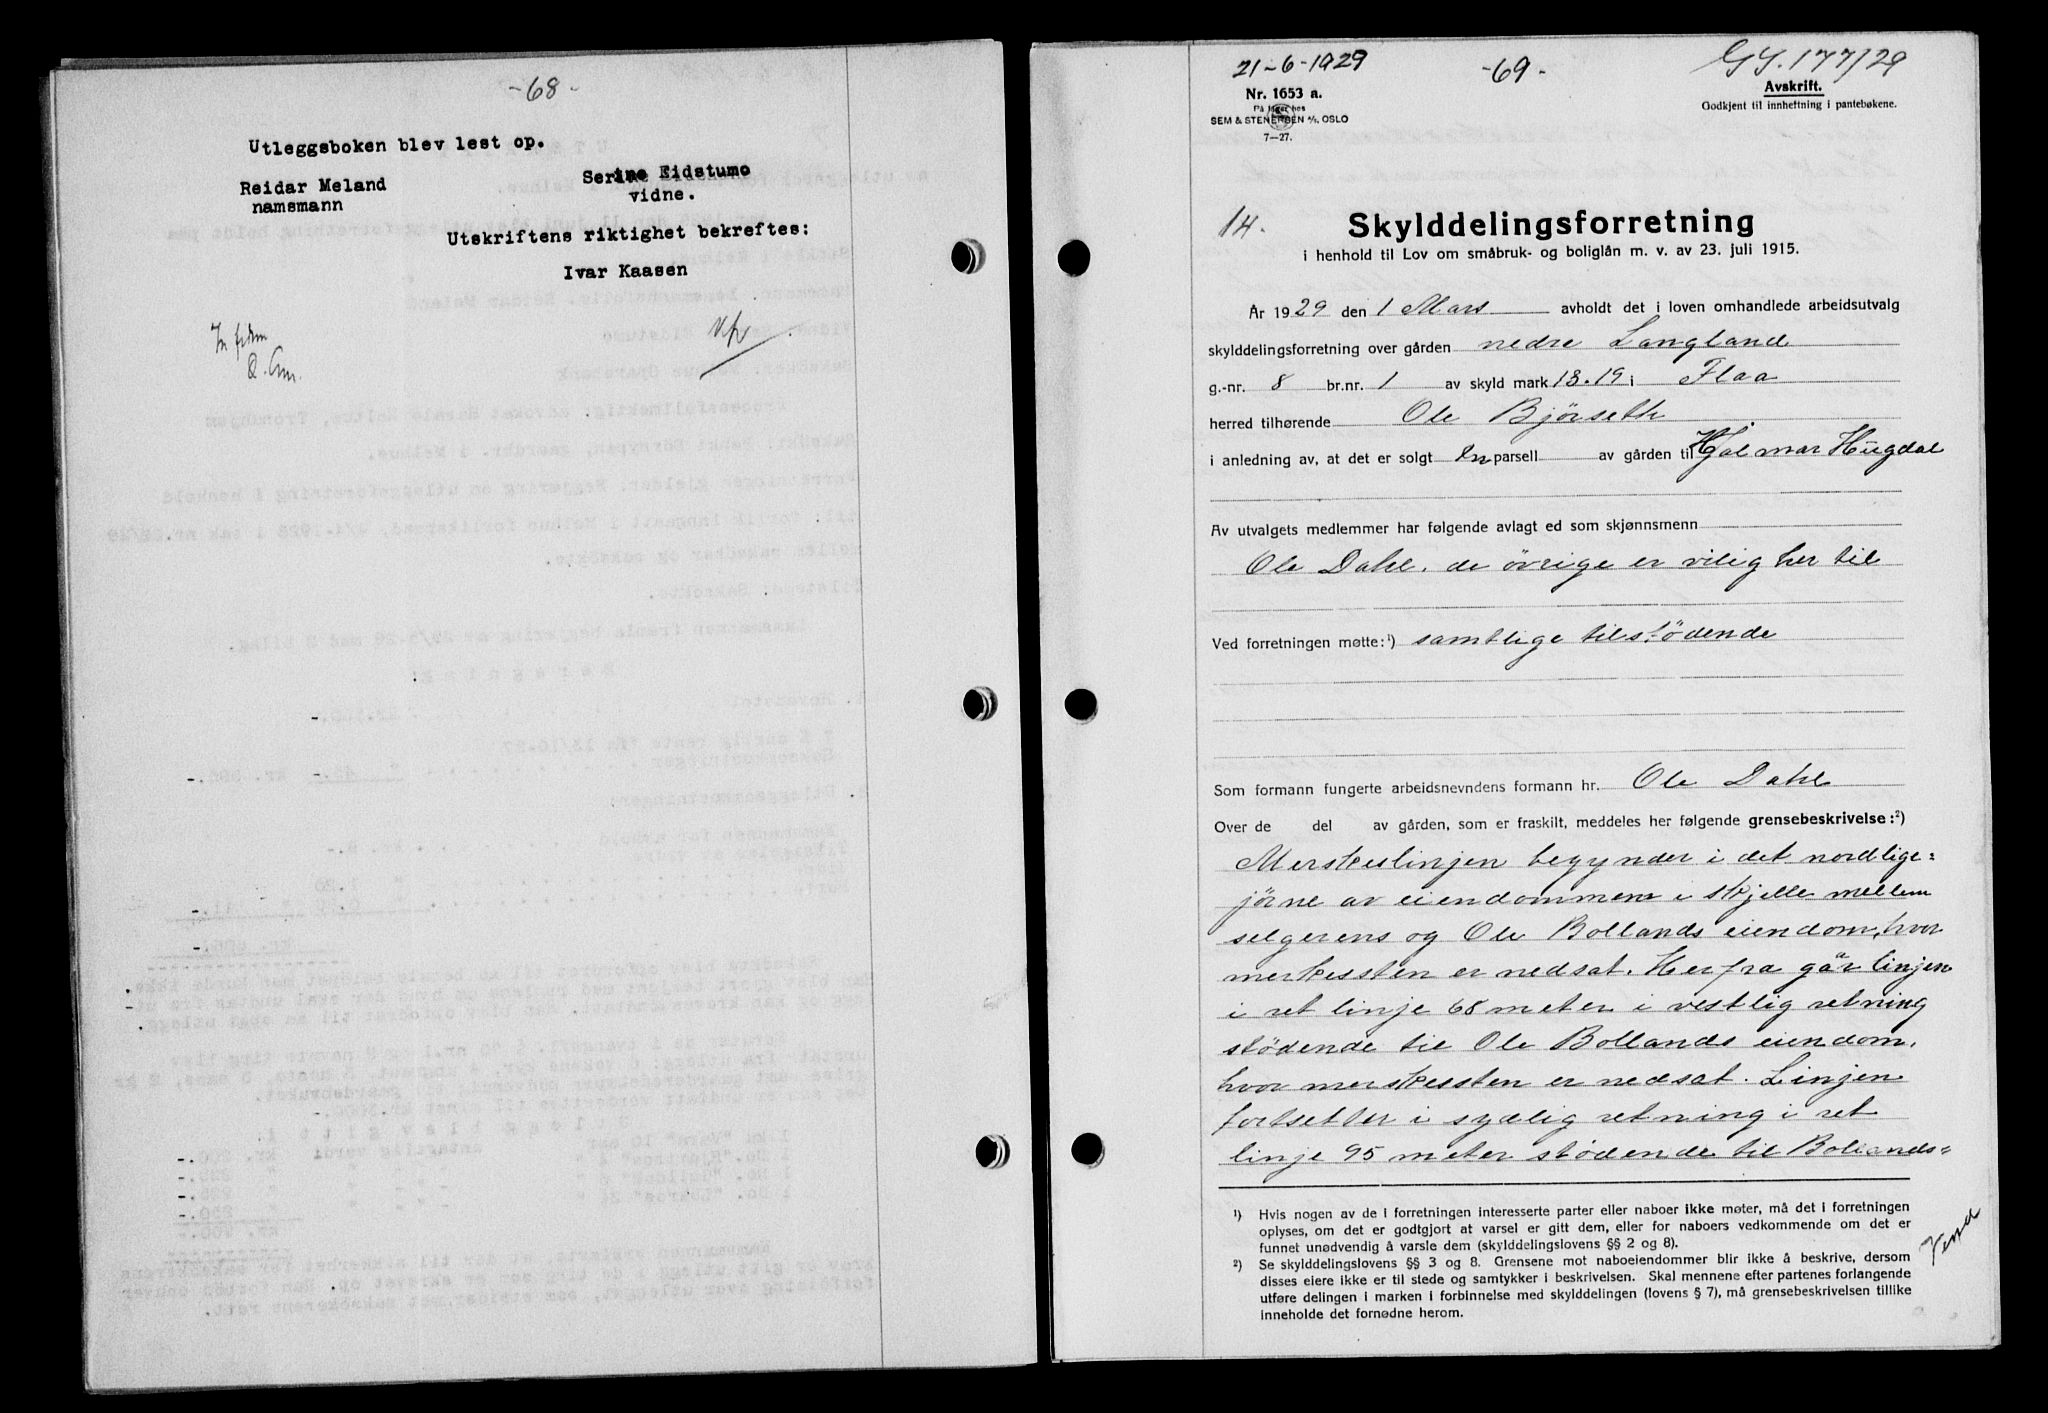 -68-
Utleggsboken blev lest op.
Reidar Meland
namsmann
Serine Eidstumo
vidne.
Utskriftens riktighet bekreftes:
Ivar Kaasen
21-6-1929
-69-
Nr. 1653 a.
På lager hos
SEM & STENERSEN A/S, OSLO
7—27.
Avskrift.
Godkjent til innheftning i pantebøkene.
14.
Skylddelingsforretning
i henhold til Lov om småbruk- og boliglån m. v. av 23. juli 1915.
År 1929 den 1 Mars avholdt det i loven omhandlede arbeidsutvalg
skylddelingsforretning over gården nedre Langland
g.-nr. 8 br.nr. 1 av skyld mark 13.19 i Flaa
herred tilhørende Ole Bjørseth
i anledning av, at det er solgt en parsell av gården til Hjalmar Hugdal
Av utvalgets medlemmer har følgende avlagt ed som skjønnsmenn
Ole Dahl, de övrige er vilig her til
Ved forretningen møtte:¹) samtlige tilstödende
Som formann fungerte arbeidsnevndens formann hr. Ole Dahl
Over de del av gården, som er fraskilt, meddeles her følgende grensebeskrivelse:²)
Merskeslinjen begynder i det nordlige=
jörne av eiendommen i skjelle mellem
selgerens og Ole Bollands eiendom, hvor
merkessten er nedsat. Her fra går linjen
i ret linje 68 meter i vestlig retning
stödende til Ole Bollands eiendom,
hvor merskessten er nedsat. Linjen
fortsetter i sydlig retning i ret
linje 95 meter stödende til Bollands=
¹) Hvis nogen av de i forretningen interesserte parter eller naboer ikke møter, må det i forretningen
oplyses, om det er godtgjort at varsel er gitt dem, eller for naboers vedkommende om det er
funnet unødvendig å varsle dem (skylddelingslovens §§ 2 og 8).
²) Se skylddelingslovens §§ 3 og 8. Grensene mot naboeiendommer blir ikke å beskrive, dersom
disses eiere ikke er til stede og samtykker i beskrivelsen. Skal mennene efter partenes forlangende
utføre delingen i marken i forbinnelse med skylddelingen (lovens § 7), må grensebeskrivelsen tillike
inneholde det fornødne herom.
Vend